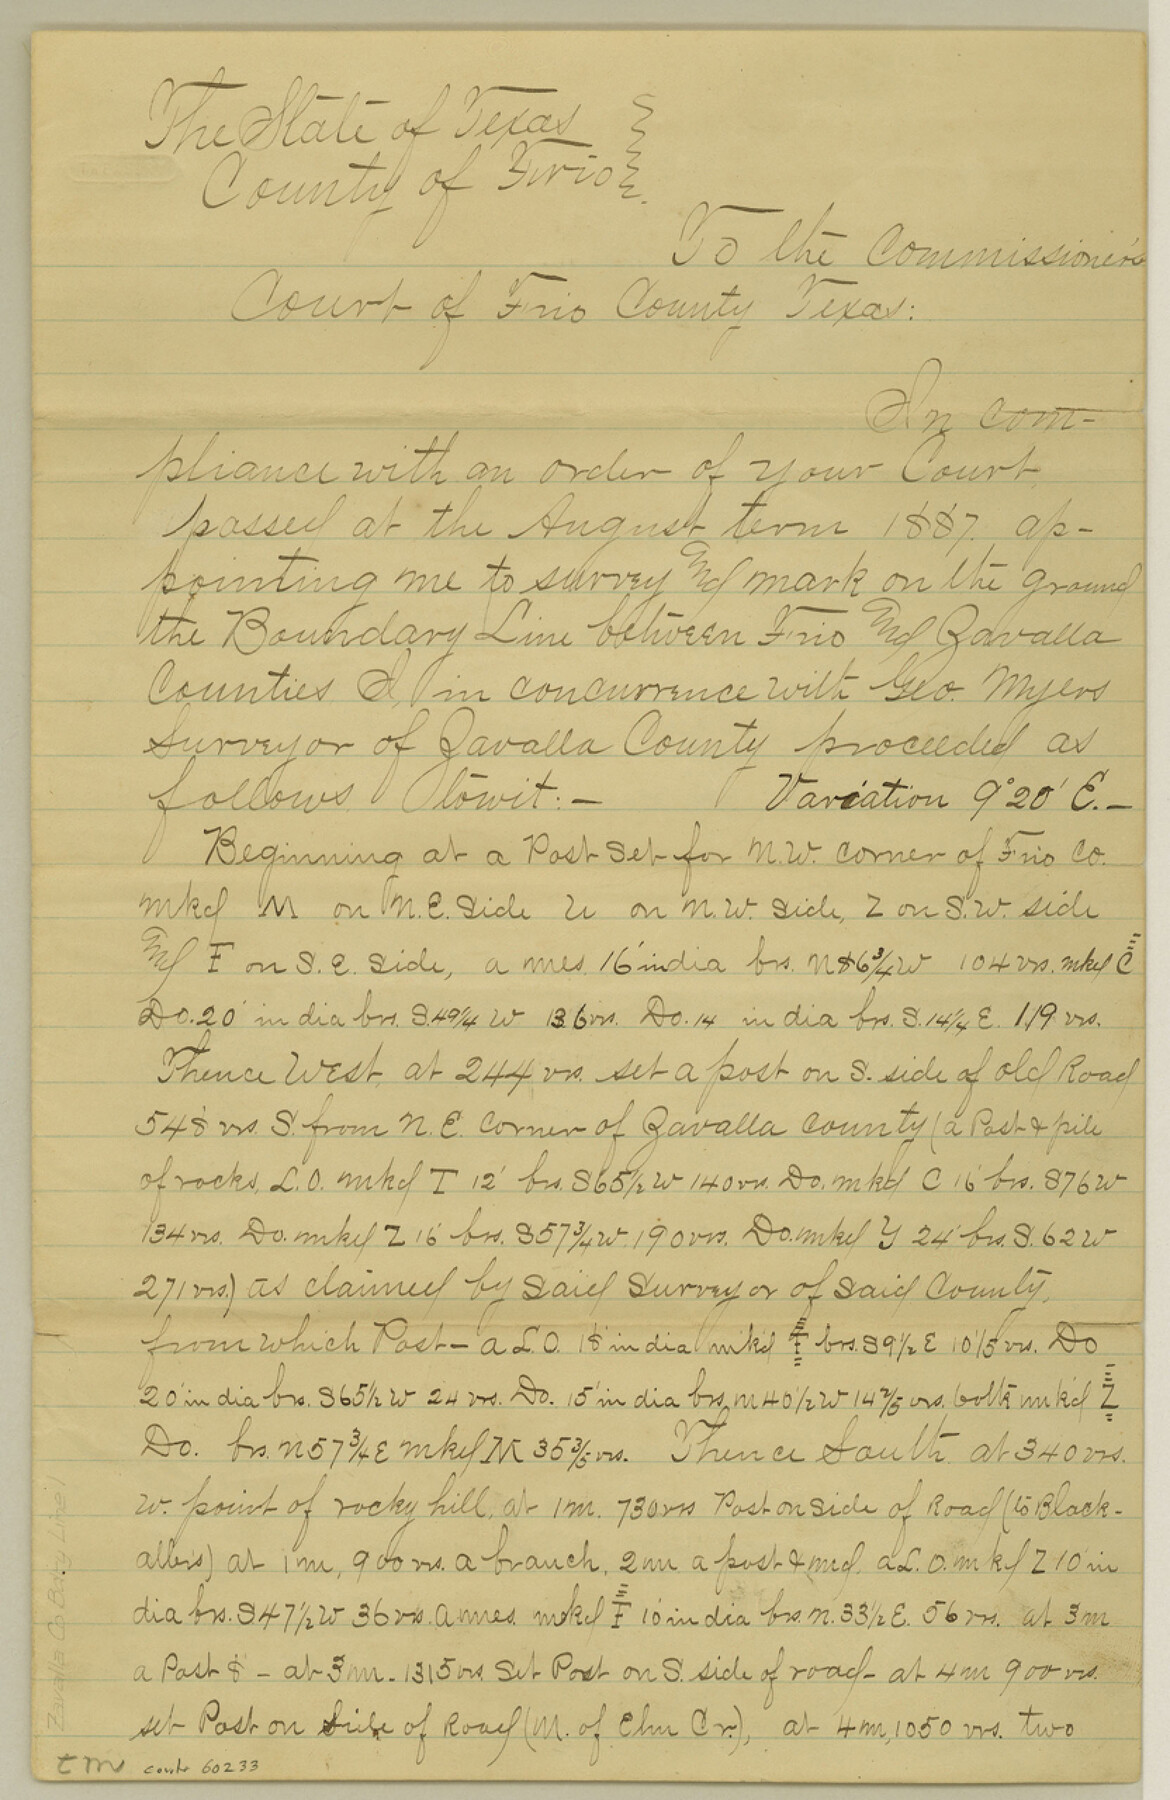 The State of Texas
County of Frio
To the Commissioner's
Court of Frio County Texas:
In com-
pliance with an order of your Court
passed at the August term 1887. ap-
pointing me to survey and mark on the ground
the Boundary Line between Frio and Zavalla
Counties I, in concurrence with Geo. Myers
Surveyor of Zavalla County proceeded as
follows towit:— Variation 9° 20' E.—
Beginning at a Post set for N.W. corner of Frio Co.
mkd M on N.E. side U on N.W. side, Z on S.W. side
and F on S.E. side, a mes. 16 in dia brs. N 86 3/4 W 104 vrs. mkd C
Do. 20 in dia brs. S. 49 1/4 W 136 vrs. Do. 14 in dia brs. S. 14 1/4 E. 119 vrs.
Thence West, at 244 vrs. set a post on S. side of old Road
548 vrs. S. from N.E. corner of Zavalla County (a Post & pile
of rocks, L.O. mkd T 12 brs. S 65 1/2 W 140 vrs. Do. mkd C 16 brs. S 76 W
134 vrs. Do. mkd Z 16 brs. S 57 3/4 W 190 vrs. Do. mkd Y 24 brs. S. 62 W
271 vrs.) as claimed by said Surveyor of said County,
from which Post— a L.O. 18 in dia mkd F brs. S 9 1/2 E 10 1/5 vrs. Do
20 in dia brs. S 65 1/2 W 24 vrs. Do. 15 in dia brs. N 40 1/2 W 14 2/5 vrs. both mkd Z
Do. brs. N 57 3/4 E mkd M 35 3/5 vrs. Thence South at 340 vrs.
W. point of rocky hill, at 1 m. 730 vrs Post on side of Road (to Black-
allers) at 1 m, 900 vrs. a branch, 2 m a post & md. a L.O. mkd Z 10 in
dia brs. S 47 1/2 W 36 vrs. a mes. mkd F 10 in dia brs. N. 33 1/2 E. 56 vrs. at 3 m
a Post & - at 3 m - 1315 vrs. set Post on S. side of road - at 4 m 900 vrs.
set Post on side of Road (N. of Elm Cr.), at 4 m, 1050 vrs. two
Zavalla Co Bdry Line 1
counter 60233